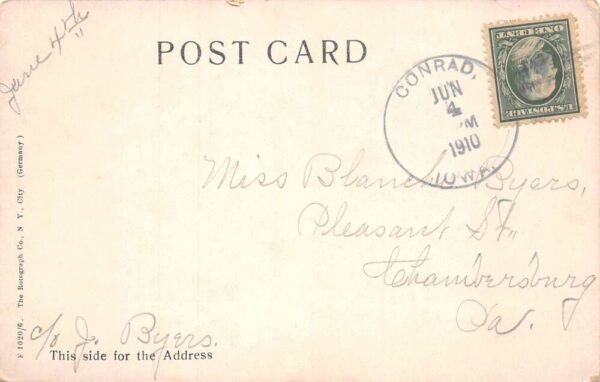 June 4th
POST CARD
CONRAD,
JUN
4
M
1910
IOWA.
U.S.POSTAGE
ONE CENT
Miss Blanche Byers,
Pleasant St.,
Chambersburg
Pa.
c/o J. Byers.
This side for the Address
F 1020/6. The Rotograph Co., N. Y., City (Germany)